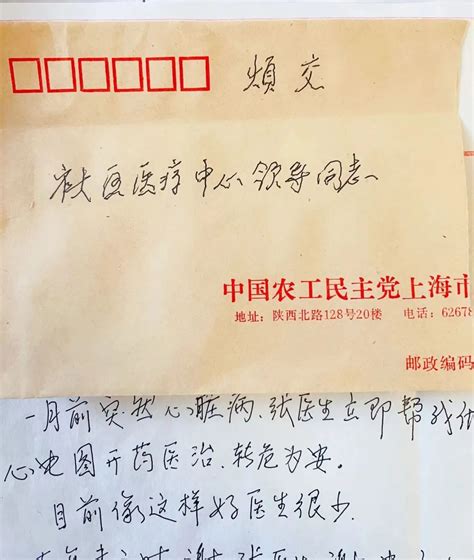 烦交
社区医疗中心领导同志
中国农工民主党上海市
地址:陕西北路128号20楼 电话:62678
邮政编码
一月前突然心脏病,张医生立即帮我做
心电图开药医治,转危为安。
目前像这样好医生很少